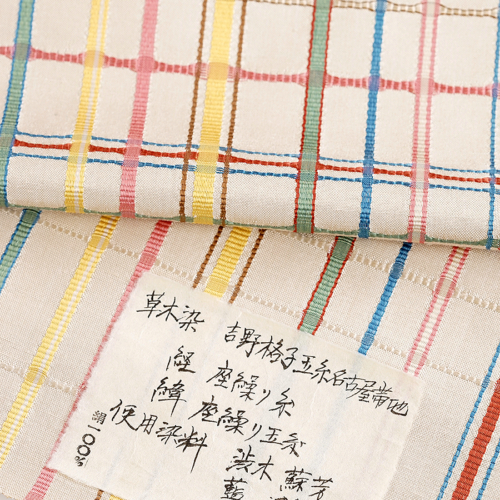 草木染
吉野格子五糸名古屋帯地
経 座繰り糸
緯 座繰り五糸
使用染料 渋木 蘇芳
藍
絹一〇〇%